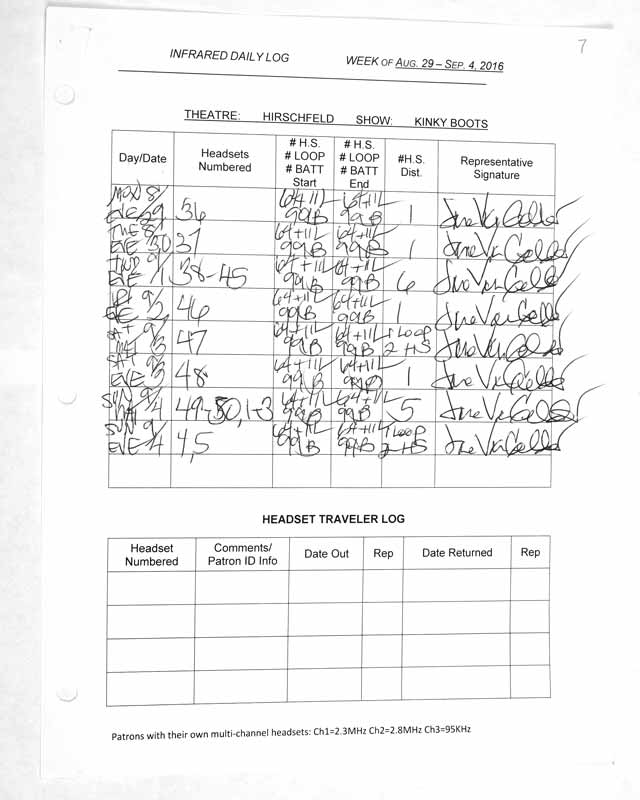 7
INFRARED DAILY LOG WEEK OF AUG. 29 – SEP. 4, 2016
THEATRE: HIRSCHFELD SHOW: KINKY BOOTS
Day/Date Headsets Numbered # H.S. # LOOP # BATT Start # H.S. # LOOP # BATT End #H.S. Dist. Representative Signature
MON 8/29 EVE 36 64+11L 99B 64+11L 99B 1
TUE 8/30 EVE 37 64+11L 99B 64+11L 99B 1
THUR 9/1 EVE 38-45 64+11L 99B 64+11L 99B 6
FRI 9/2 EVE 46 64+11L 99B 64+11L 99B 1
SAT 9/3 MAT 47 64+11L 99B 64+11L 99B 1 LOOP 2 HS
SAT 9/3 EVE 48 64+11L 99B 64+11L 99B 1
SUN 9/4 MAT 49-50, 1-3 64+11L 99B 64+11L 99B 5
SUN 9/4 EVE 4,5 64+11L 99B 64+11L 99B 1 LOOP 2 HS
HEADSET TRAVELER LOG
Headset Numbered Comments/ Patron ID Info Date Out Rep Date Returned Rep
Patrons with their own multi-channel headsets: Ch1=2.3MHz Ch2=2.8MHz Ch3=95KHz